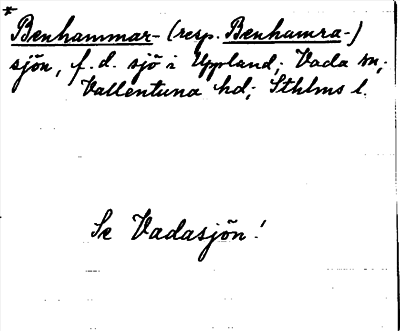 *
Benhammar- (resp. Benhamra-)
sjön, f. d. sjö i Uppland; Vada sn;
Vallentuna hd; Sthlms l.
Se Vadasjön!